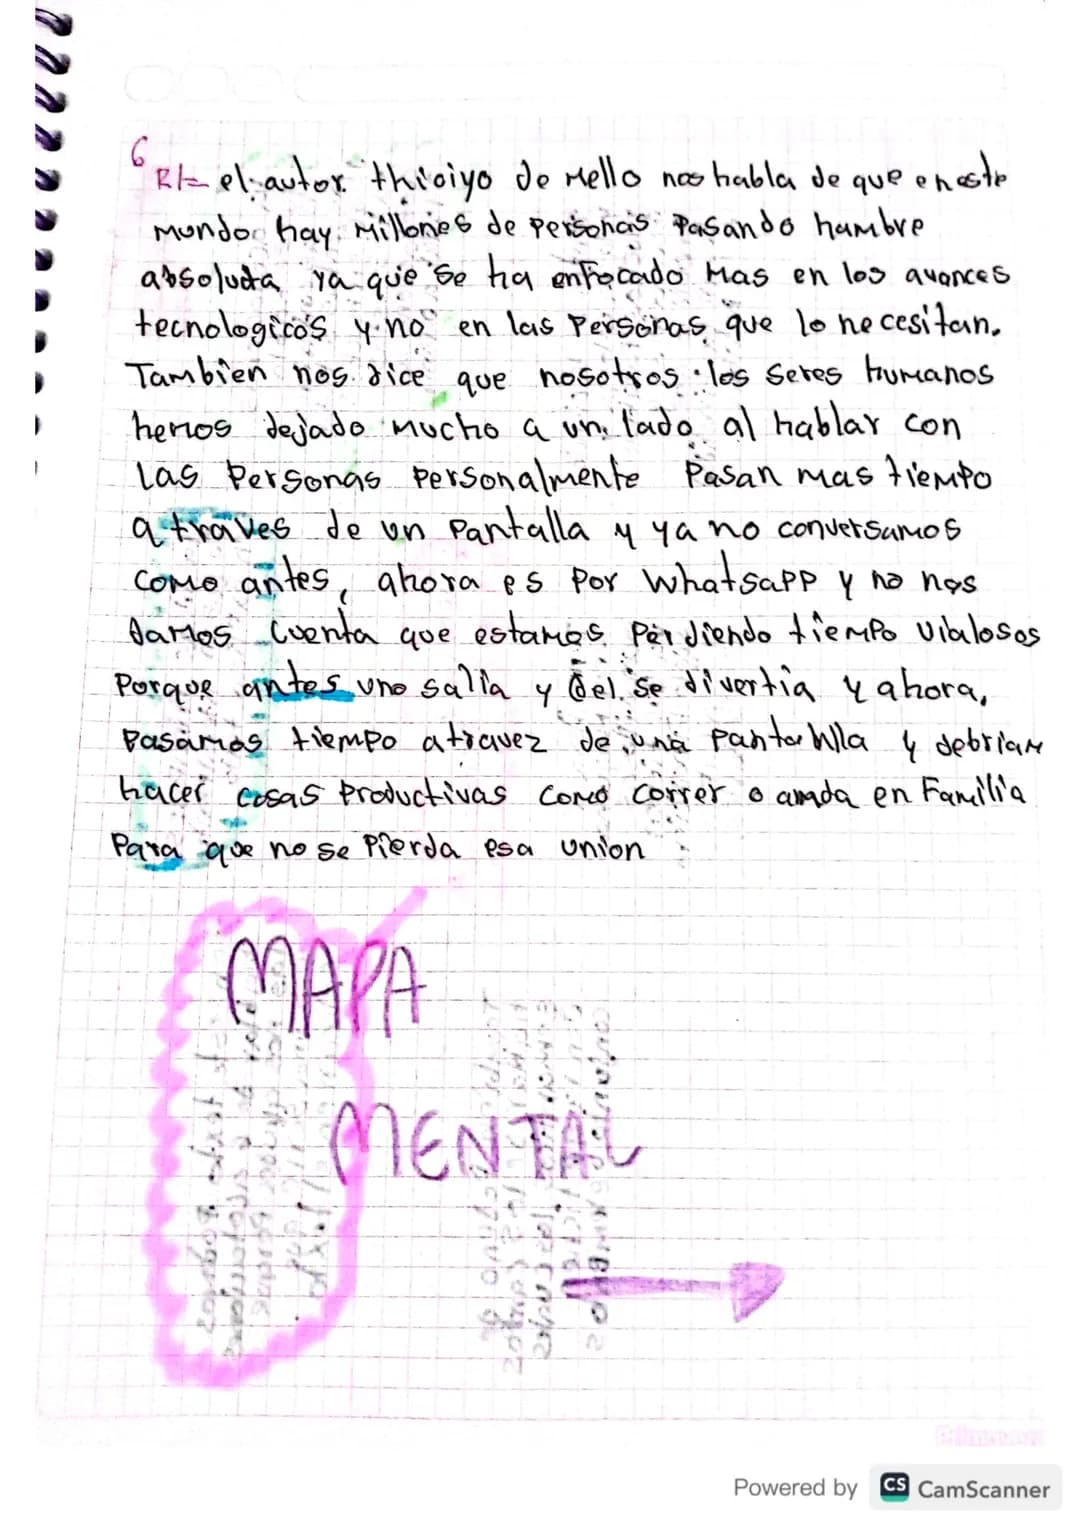 6
R/= el autor thioiyo de Mello nos habla de que en este
mundo hay Millones de Personas Pasando hambre
absoluta ya que se ha enfocado Mas en los avances
tecnologicos y no en las Personas que lo necesitan.
Tambien nos dice que nosotros los seres humanos
hemos dejado Mucho a un lado al hablar con
las Personas Personalmente Pasan mas tiempo
a traves de un Pantalla y ya no conversamos
como antes, ahora es Por Whatsapp y no nos
damos cuenta que estamos Perdiendo tiempo vialosos
Porque antes uno salia y del se divertia y ahora,
Pasamos tiempo atravez de una Pantahlla y debrian
hacer cosas Productivas como correr o anda en Familia
Para que no se Pierda esa union
MAPA
MENTAL
Powered by CS CamScanner